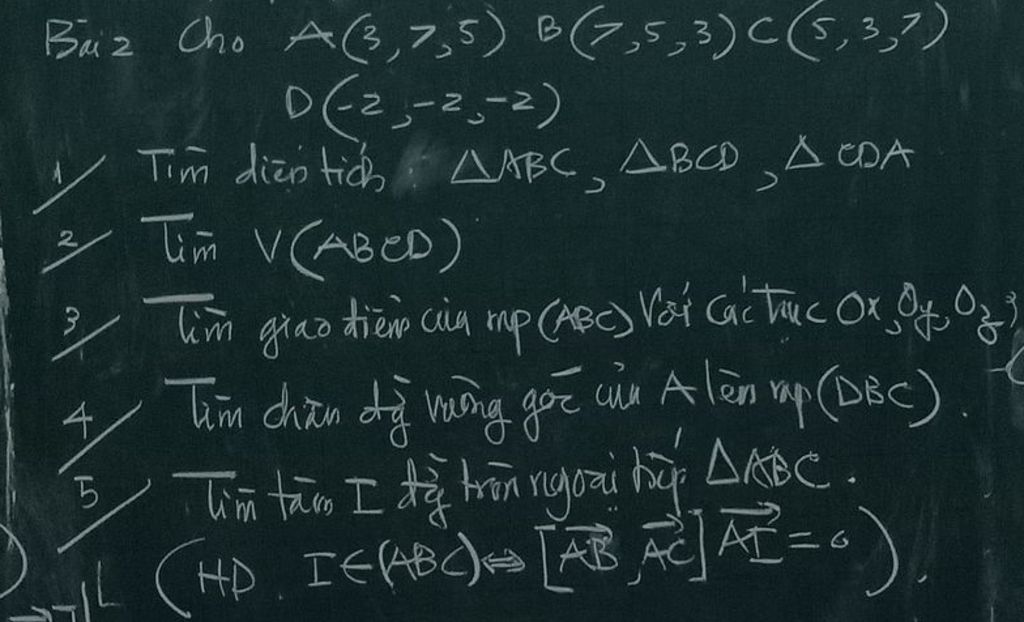 Bài 2 Cho A(3,7,5) B(7,5,3) C(5,3,7)
D(-2,-2,-2)
1/ Tìm diện tích: △ABC, △BCD, △CDA
2/ Tìm V(ABCD)
3/ Tìm giao điểm của mp(ABC) Với các trục Ox, Oy, Oz
4/ Tìm chân đg vuông góc của A lên mp(DBC).
5/ Tìm tâm I đg tròn ngoại tiếp △ABC.
(HD I∈(ABC)⇔[AB⃗, AC⃗]AI⃗=0).